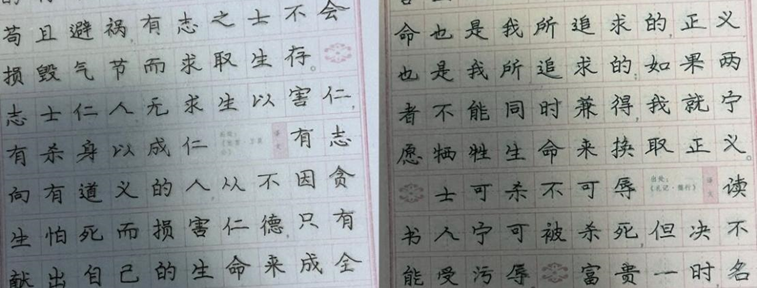 苟且避祸,有志之士不会
损毁气节而求取生存。
志士仁人无求生以害仁,
有杀身以成仁 有志
向有道义的人,从不因贪
生怕死而损害仁德,只有
献出自己的生命来成全
命也是我所追求的,正义
也是我所追求的;如果两
者不能同时兼得,我就宁
愿牺牲生命来换取正义。
士可杀不可辱 出处:《礼记·儒行》 译文 读
书人宁可被杀死,但决不
能受污辱 富贵一时,名